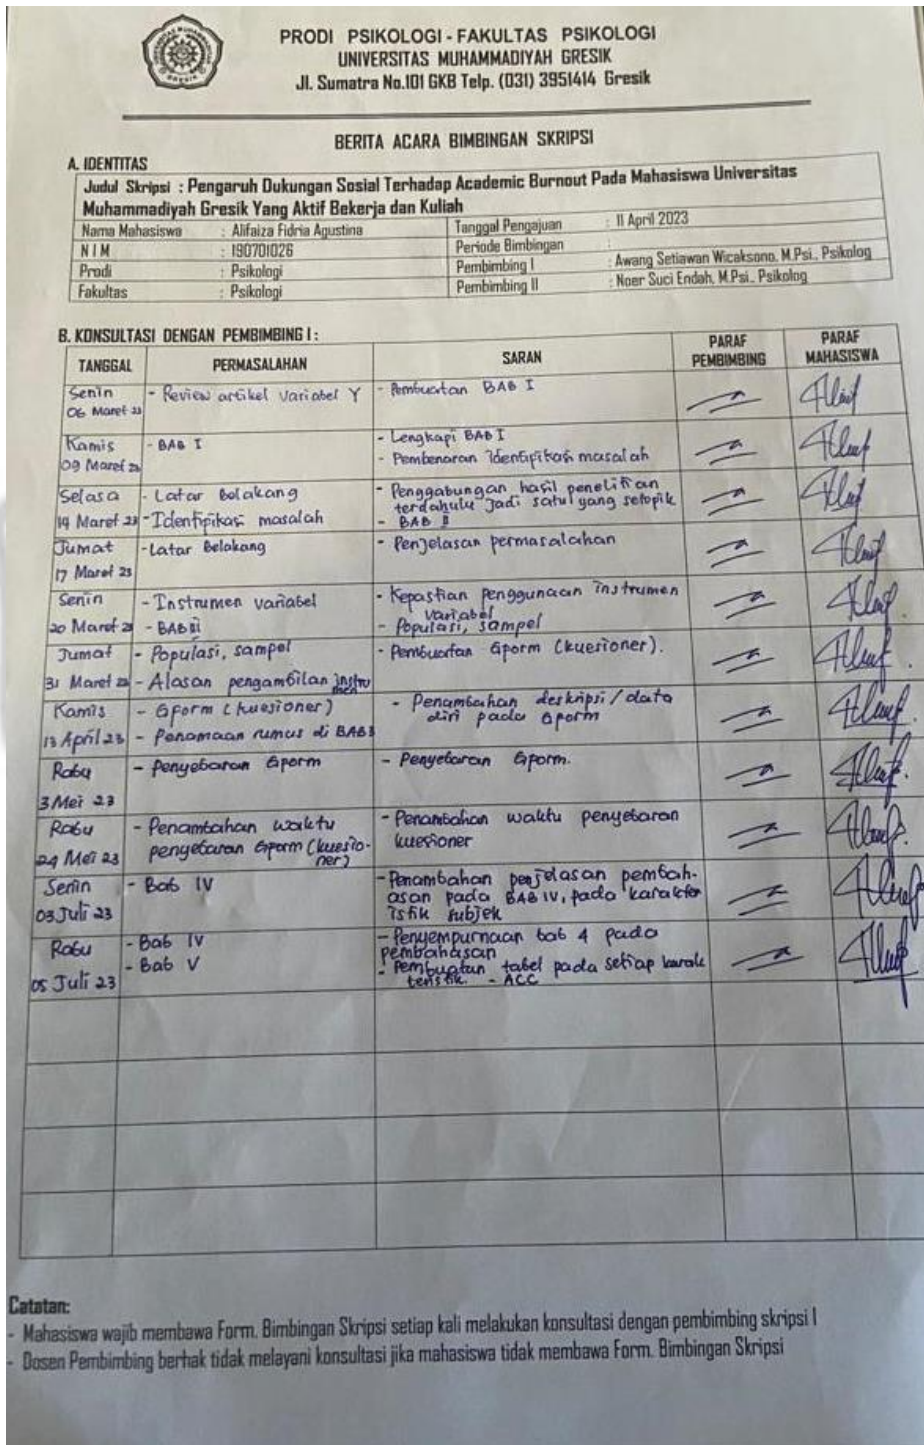 PRODI PSIKOLOGI - FAKULTAS PSIKOLOGI
UNIVERSITAS MUHAMMADIYAH GRESIK
Jl. Sumatra No.101 GKB Telp. (031) 3951414 Gresik
BERITA ACARA BIMBINGAN SKRIPSI
A. IDENTITAS
Judul Skripsi : Pengaruh Dukungan Sosial Terhadap Academic Burnout Pada Mahasiswa Universitas
Muhammadiyah Gresik Yang Aktif Bekerja dan Kuliah
Nama Mahasiswa : Alifaiza Fidria Agustina Tanggal Pengajuan : 11 April 2023
N I M : 190701026 Periode Bimbingan :
Prodi : Psikologi Pembimbing I : Awang Setiawan Wicaksono, M.Psi., Psikolog
Fakultas : Psikologi Pembimbing II : Noer Suci Endah, M.Psi., Psikolog
B. KONSULTASI DENGAN PEMBIMBING I :
TANGGAL PERMASALAHAN SARAN PARAF PEMBIMBING PARAF MAHASISWA
Senin - Review artikel Variabel Y - Pembuatan BAB I
06 Maret 23
Kamis - BAB I - Lengkapi BAB I
09 Maret 23 - Pembenaran identifikasi masalah
Selasa - Latar Belakang - Penggabungan hasil penelitian
terdahulu jadi satu yang setopik
14 Maret 23 - Identifikasi masalah - BAB II
Jumat - Latar Belakang - Penjelasan permasalahan
17 Maret 23
Senin - Instrumen variabel - Kepastian penggunaan instrumen
variabel
20 Maret 23 - BAB III - Populasi, sampel
Jumat - Populasi, sampel - Pembuatan Gform (kuesioner).
31 Maret 23 - Alasan pengambilan instrumen
Kamis - Gform (kuesioner) - Penambahan deskripsi/data
diri pada Gform
13 April 23 - Penamaan rumus di BAB 3
Rabu - Penyebaran Gform - Penyebaran Gform.
3 Mei 23
Rabu - Penambahan waktu - Penambahan waktu penyebaran
24 Mei 23 penyebaran Gform (kuesioner) kuesioner
Senin - Bab IV - Penambahan penjelasan pembah-
03 Juli 23 asan pada BAB IV, pada karakter
istik subjek
Rabu - Bab IV - Penyempurnaan bab 4 pada
pembahasan
05 Juli 23 - Bab V - Pembuatan tabel pada setiap karak
teristik. - ACC
Catatan:
- Mahasiswa wajib membawa Form. Bimbingan Skripsi setiap kali melakukan konsultasi dengan pembimbing skripsi I
- Dosen Pembimbing berhak tidak melayani konsultasi jika mahasiswa tidak membawa Form. Bimbingan Skripsi